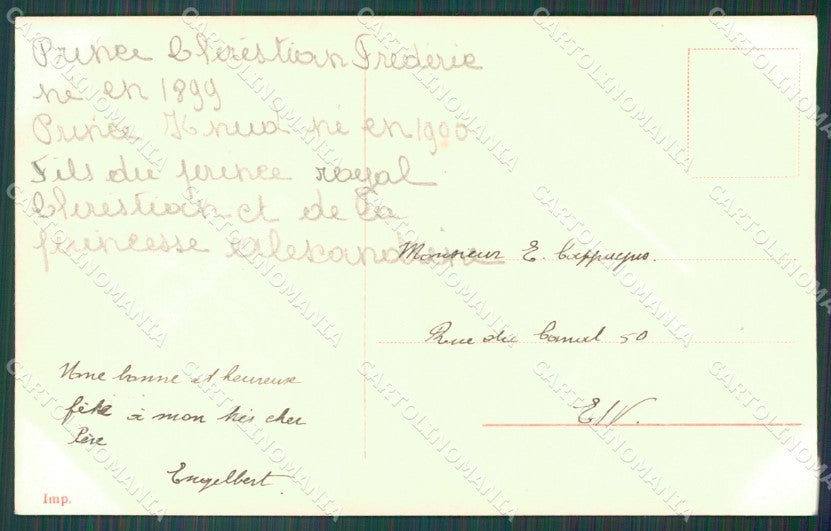 Prince Christian Frederic
né en 1899
Prince Knud né en 1900
Fils du prince royal
Christian et de la
princesse Alexandrine
Monsieur E. Cappaepus.
Rue du Canal 50
E/V.
Une bonne et heureuse
fête à mon très cher
Père
Engelbert.
Imp.
CARTOLINOMANIA